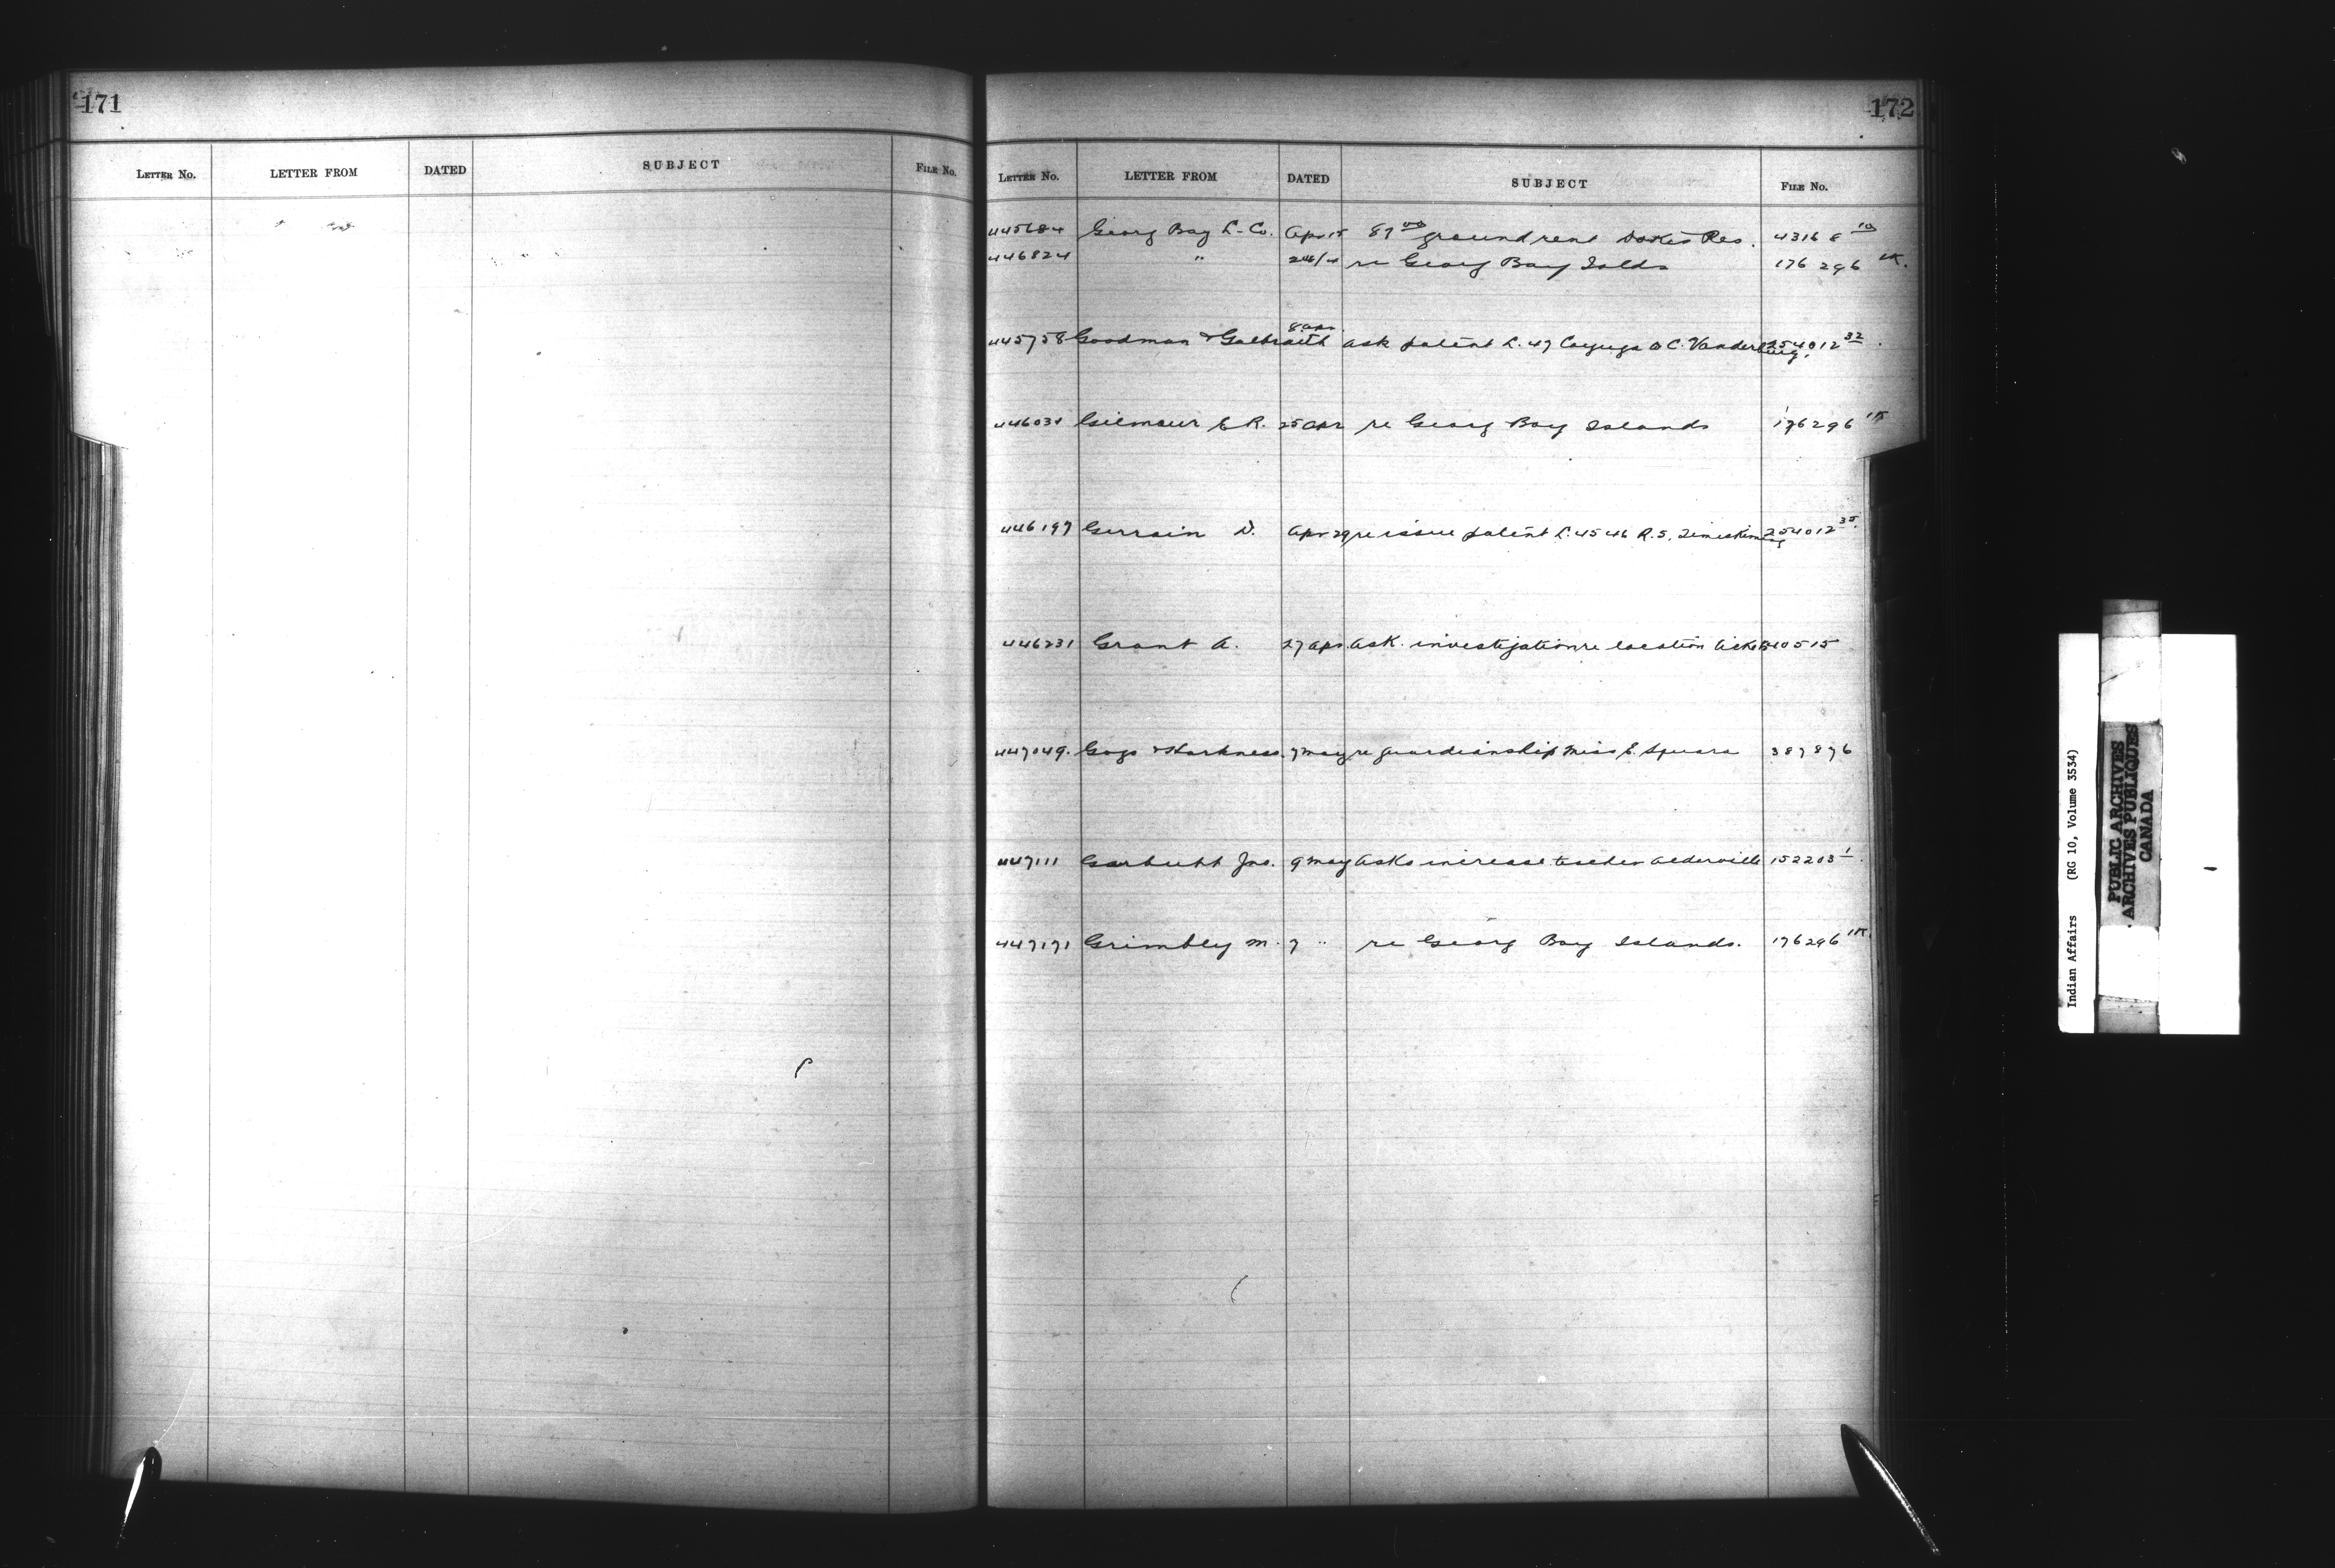 171
LETTER NO. LETTER FROM DATED SUBJECT FILE NO.
172
LETTER NO. LETTER FROM DATED SUBJECT FILE NO.
445684 Georg Bay L. Co. Apr 15 87 00 ground rent Dokis Res. 4316 8 10
446824 " 24/4 re Georg Bay Islds 176 296 1K.
445758 Goodman & Galbraith 8 apr. ask patent L. 47 Cayuga to C. Vanderburg. 254012 32.
446031 Gilmour E R. 25 apr re Georg Bay Islands 176296 1K
446197 Gerrain D. Apr 29 re issue patent L. 45 46 R. 5, Temiskaming 254012 35.
446231 Grant A. 27 apr. ask. investigation re location 310515
447049. Gogo & Harkness. 7 may re guardianship Miss E. Square 387876
447111 Garbutt Jno. 9 may asks increase teacher Alderville 152203 1.
447171 Grimbly M. 7 " re Georg Bay Islands. 176296 1K.
Indian Affairs (RG 10, Volume 3534)
PUBLIC ARCHIVES
ARCHIVES PUBLIQUES
CANADA